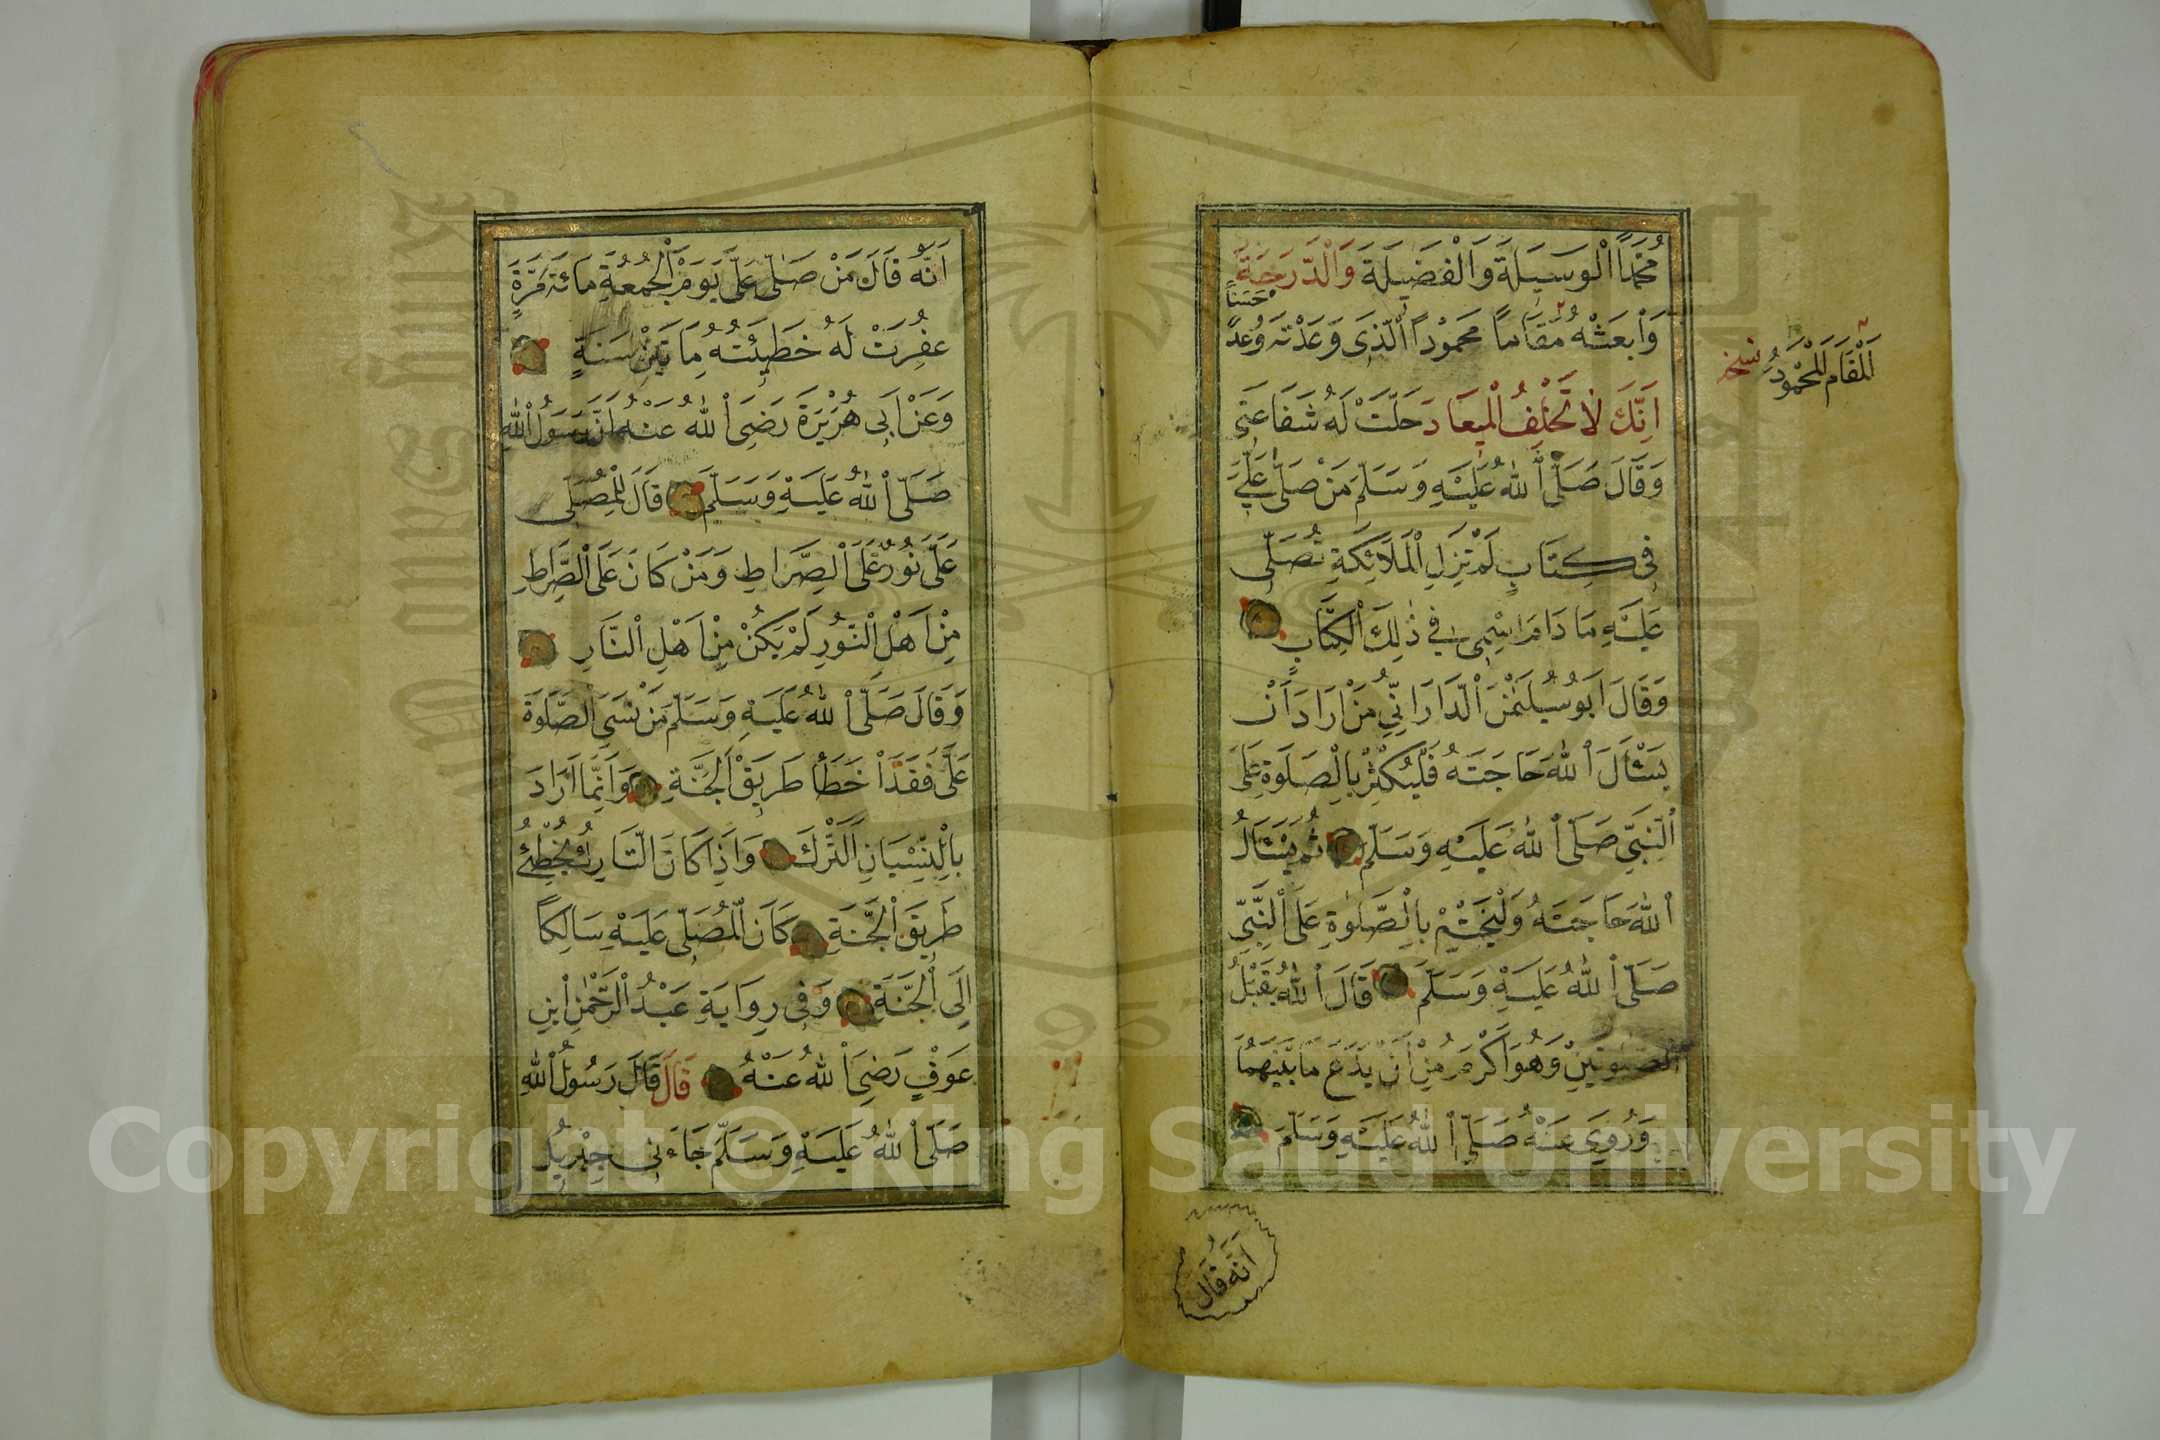 مُحَمَّدًا الْوَسِيلَةَ وَالْفَضِيلَةَ وَالدَّرَجَةَ
حَسَنًا
وَابْعَثْهُ مَقَامًا مَحْمُودًا الَّذِى وَعَدْتَهُ وَعْدًا
الْمَقَامَ الْمَحْمُودَ نسخه
اِنَّكَ لَا تُخْلِفُ الْمِيعَادَ حَلَّتْ لَهُ شَفَاعَتِى
وَقَالَ صَلَّى اللهُ عَلَيْهِ وَسَلَّمَ مَنْ صَلَّى عَلَيَّ
فِى كِتَابٍ لَمْ تَزَلِ الْمَلَائِكَةِ تُصَلِّى
عَلَيْهِ مَا دَامَ اسْمِى فِى ذٰلِكَ الْكِتَابِ
وَقَالَ اَبُو سُلَيْمٰنَ الدَّارَانِيُّ مَنْ اَرَادَ اَنْ
يَسْئَلَ اللهَ حَاجَتَهُ فَلْيُكْثِرْ بِالصَّلَوةِ عَلَى
النَّبِيِّ صَلَّى اللهُ عَلَيْهِ وَسَلَّمَ ثُمَّ يَسْئَلُ
اللهَ حَاجَتَهُ وَلْيَخْتِمْ بِالصَّلٰوةِ عَلَى النَّبِيِّ
صَلَّى اللهُ عَلَيْهِ وَسَلَّمَ قَالَ اللهُ يَقْبَلُ
الصَّلٰوتَيْنِ وَهُوَ اَكْرَمُ مِنْ اَنْ يَدَعَ مَا بَيْنَهُمَا
وَرُوِيَ عَنْهُ صَلَّى اللهُ عَلَيْهِ وَسَلَّمَ
اَنَّهُ قَالَ
اَنَّهُ قَالَ مَنْ صَلَّى عَلَىَّ يَوْمَ الْجُمُعَةِ مِائَةَ مَرَّةٍ
غُفِرَتْ لَهُ خَطِيئَتُهُ مِائَتَيْنِ سَنَةٍ
وَعَنْ اَبِى هُرَيْرَةَ رَضِىَ اللهُ عَنْهُ اَنَّ رَسُولَ اللهِ
صَلَّى اللهُ عَلَيْهِ وَسَلَّمَ قَالَ لِلْمُصَلِّى
عَلَىَّ نُورٌ عَلَى الصِّرَاطِ وَمَنْ كَانَ عَلَى الصِّرَاطِ
مِنْ اَهْلِ النُّورِ لَمْ يَكُنْ مِنْ اَهْلِ النَّارِ
وَقَالَ صَلَّى اللهُ عَلَيْهِ وَسَلَّمَ مَنْ نَسِىَ الصَّلٰوةَ
عَلَىَّ فَقَدْ اَخْطَأَ طَرِيقَ الْجَنَّةِ وَاِنَّمَا اَرَادَ
بِالنِّسْيَانِ التَّرْكَ وَاِذَا كَانَ التَّارِكُ يُخْطِئُ
طَرِيقَ الْجَنَّةِ كَانَ الْمُصَلِّى عَلَيْهِ سَالِكًا
اِلَى الْجَنَّةِ وَفِى رِوَايَةِ عَبْدُ الرَّحْمٰنِ ابْنِ
عَوْفٍ رَضِىَ اللهُ عَنْهُ قَالَ قَالَ رَسُولُ اللهِ
صَلَّى اللهُ عَلَيْهِ وَسَلَّمَ جَاءَنِى جِبْرِيلُ
Copyright © King Saud University